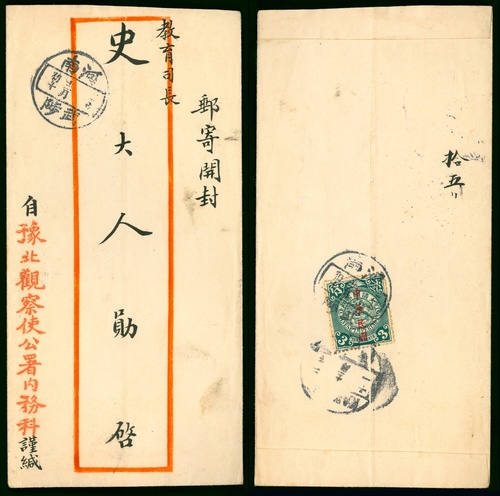 郵寄開封
教育司長
史大人勛啓
自豫北觀察使公署內務科謹緘
河南
武陟
拾五
河南
3
3